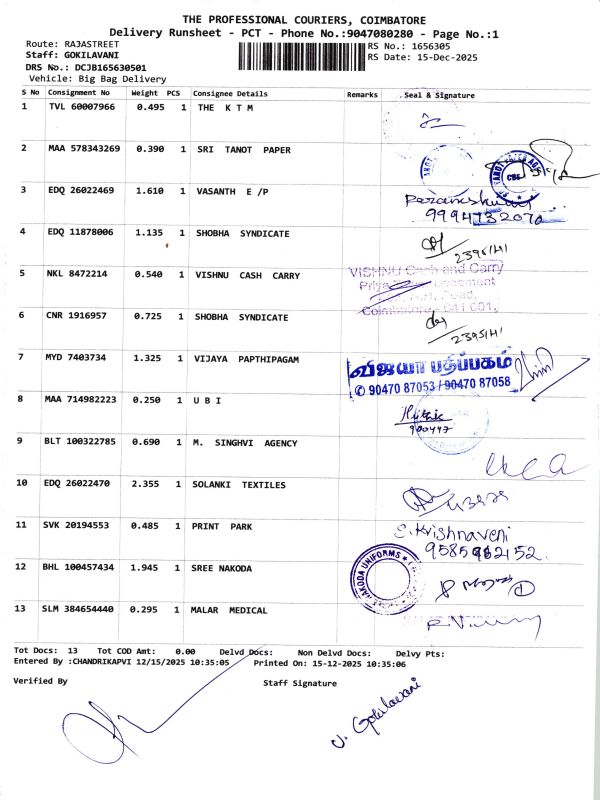 THE PROFESSIONAL COURIERS, COIMBATORE
Delivery Runsheet - PCT - Phone No.:9047080280 - Page No.:1
Route: RAJASTREET
RS No.: 1656305
Staff: GOKILAVANI
RS Date: 15-Dec-2025
DRS No.: DCJB165630501
Vehicle: Big Bag Delivery
S No Consignment No Weight PCS Consignee Details Remarks Seal & Signature
1 TVL 60007966 0.495 1 THE K T M
2 MAA 578343269 0.390 1 SRI TANOT PAPER
3 EDQ 26022469 1.610 1 VASANTH E /P
9994732070
4 EDQ 11878006 1.135 1 SHOBHA SYNDICATE
2395/H1
5 NKL 8472214 0.540 1 VISHNU CASH CARRY
VISHNU Cash and Carry
6 CNR 1916957 0.725 1 SHOBHA SYNDICATE
2395/H1
7 MYD 7403734 1.325 1 VIJAYA PAPTHIPAGAM
விஜயா பதிப்பகம்
✆ 90470 87053 / 90470 87058
8 MAA 714982223 0.250 1 U B I
9 BLT 100322785 0.690 1 M. SINGHVI AGENCY
10 EDQ 26022470 2.355 1 SOLANKI TEXTILES
11 SVK 20194553 0.485 1 PRINT PARK
E. Krishnaveni
9585982152
12 BHL 100457434 1.945 1 SREE NAKODA
NAKODA UNIFORMS
13 SLM 384654440 0.295 1 MALAR MEDICAL
Tot Docs: 13 Tot COD Amt: 0.00 Delvd Docs: Non Delvd Docs: Delvy Pts:
Entered By :CHANDRIKAPVI 12/15/2025 10:35:05 Printed On: 15-12-2025 10:35:06
Verified By Staff Signature
V. Gokilavani